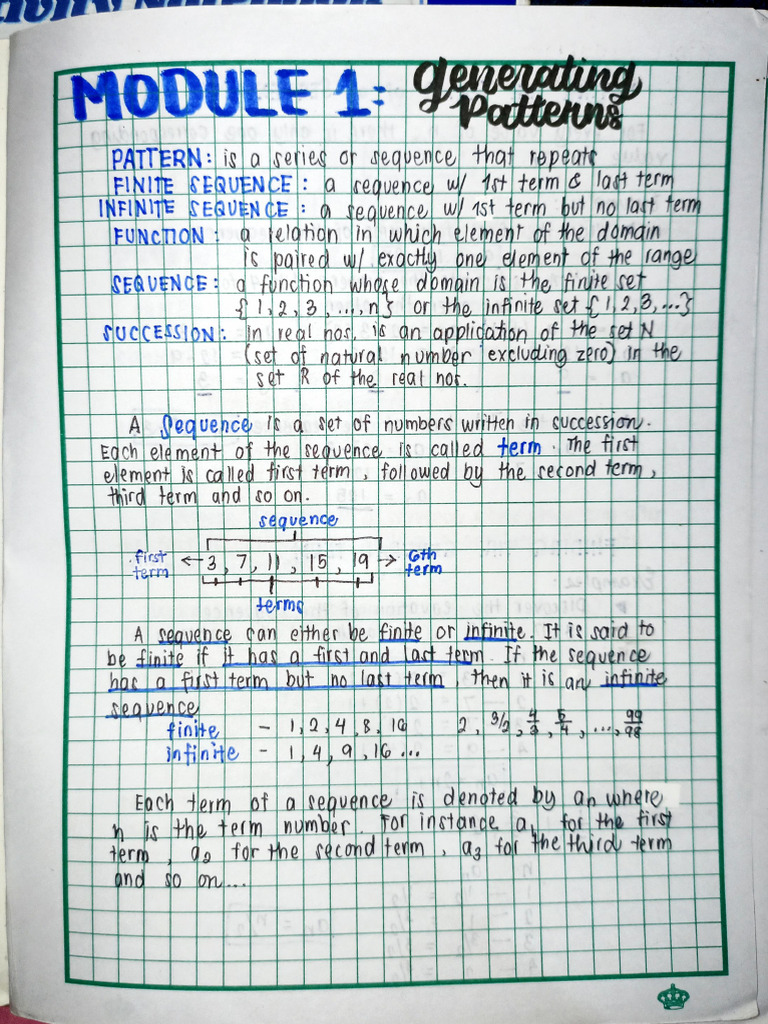 MODULE 1: Generating Patterns
PATTERN: is a series or sequence that repeats
FINITE SEQUENCE: a sequence w/ 1st term & last term
INFINITE SEQUENCE: a sequence w/ 1st term but no last term
FUNCTION: a relation in which element of the domain
is paired w/ exactly one element of the range
SEQUENCE: a function whose domain is the finite set
{1, 2, 3, ..., n} or the infinite set {1, 2, 3, ...}
SUCCESSION: in real nos. is an application of the set N
(set of natural number excluding zero) in the
set R of the real nos.
A Sequence is a set of numbers written in succession.
Each element of the sequence is called term. The first
element is called first term, followed by the second term,
third term and so on.
sequence
first term ← 3, 7, 11, 15, 19 → 6th term
terms
A sequence can either be finite or infinite. It is said to
be finite if it has a first and last term. If the sequence
has a first term but no last term, then it is an infinite
sequence
finite - 1, 2, 4, 8, 16 2, 3/2, 4/3, 5/4, ..., 99/98
infinite - 1, 4, 9, 16 ...
Each term of a sequence is denoted by an where
n is the term number. For instance a1 for the first
term, a2 for the second term, a3 for the third term
and so on...